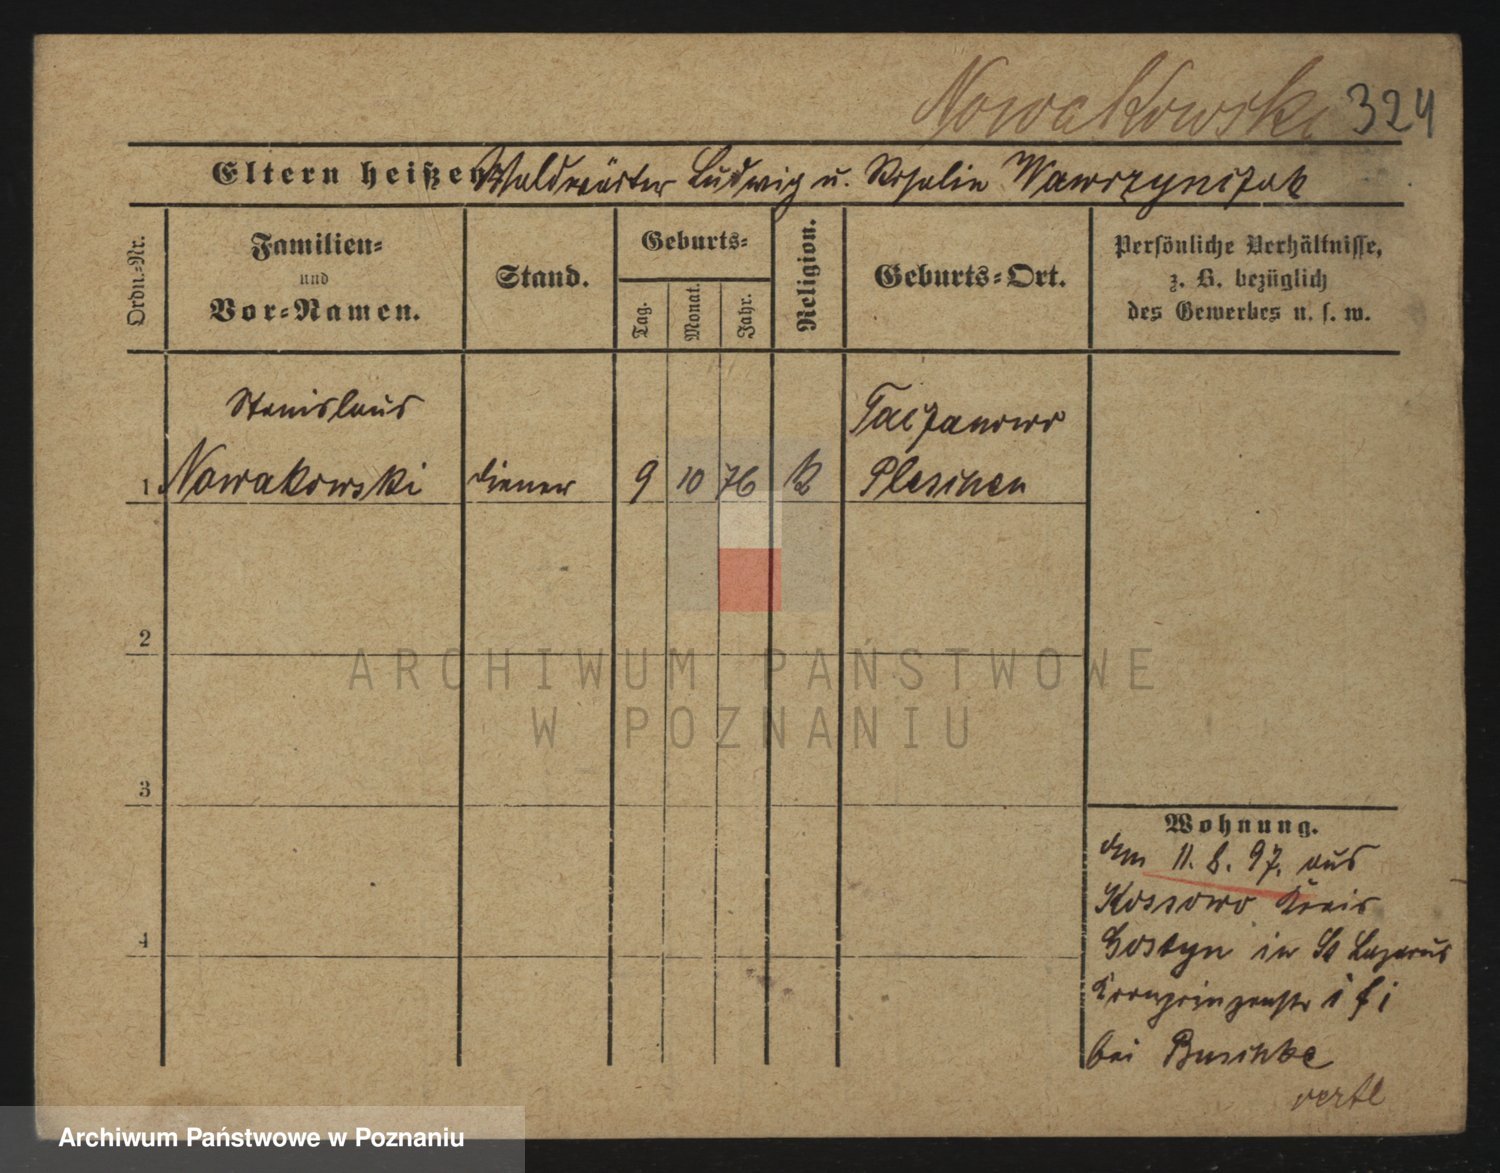 Nowakowski 324
Eltern heißen Waldwärter Ludwig u. Rosalie Wawrzynizak
Ordn.-Nr.
Familien-
und
Vor-Namen.
Stand.
Geburts-
Tag.
Monat.
Jahr.
Religion.
Geburts-Ort.
Persönliche Verhältnisse,
z. B. bezüglich
des Gewerbes u. s. w.
Stanislaus Taczanowo
1 Nowakowski diener 9 10 76 K Pleschen
2
3
4
ARCHIWUM PAŃSTWOWE
W POZNANIU
Wohnung.
11. 8. 97. aus
Kossowo Kreis
Gostyn in St Lazarus
Kronprinzenstr
bei Buschke
Archiwum Państwowe w Poznaniu